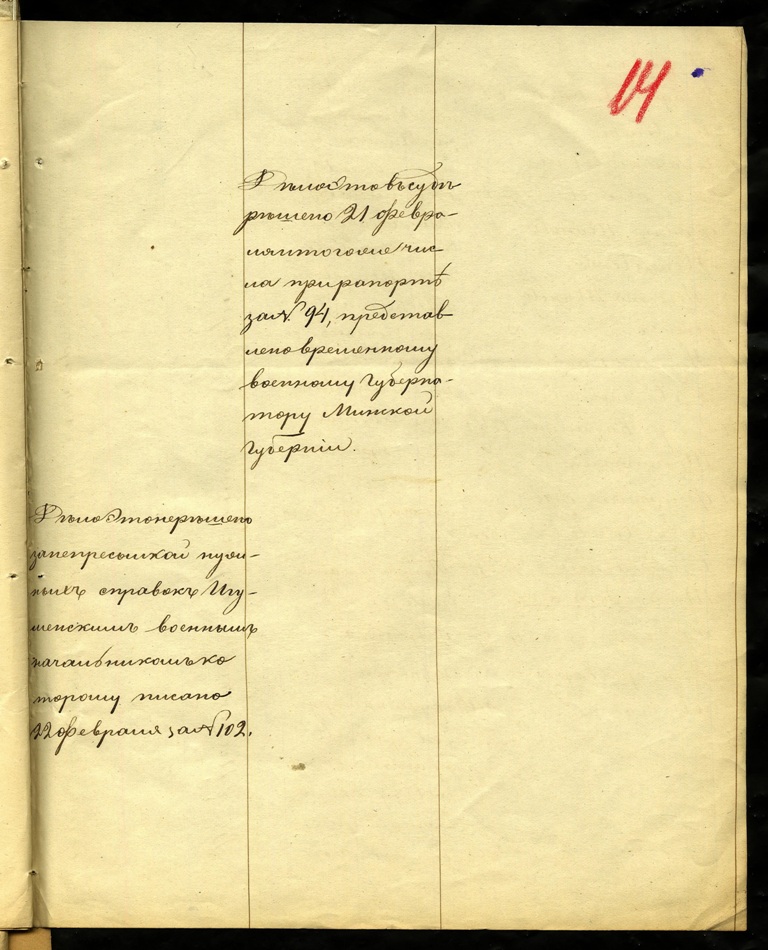 14
Дѣло это въ судѣ
рѣшено 21 февра-
ля и того же чис-
ла при рапортѣ
за № 94, представ
лено временному
военному Губерна-
тору Минской
Губерніи.
Дѣло это не рѣшено
за непресылкой нуж-
ныхъ справокъ Игу-
менскимъ военнымъ
начальникомъ ко
торому писано
22 февраля за № 102.